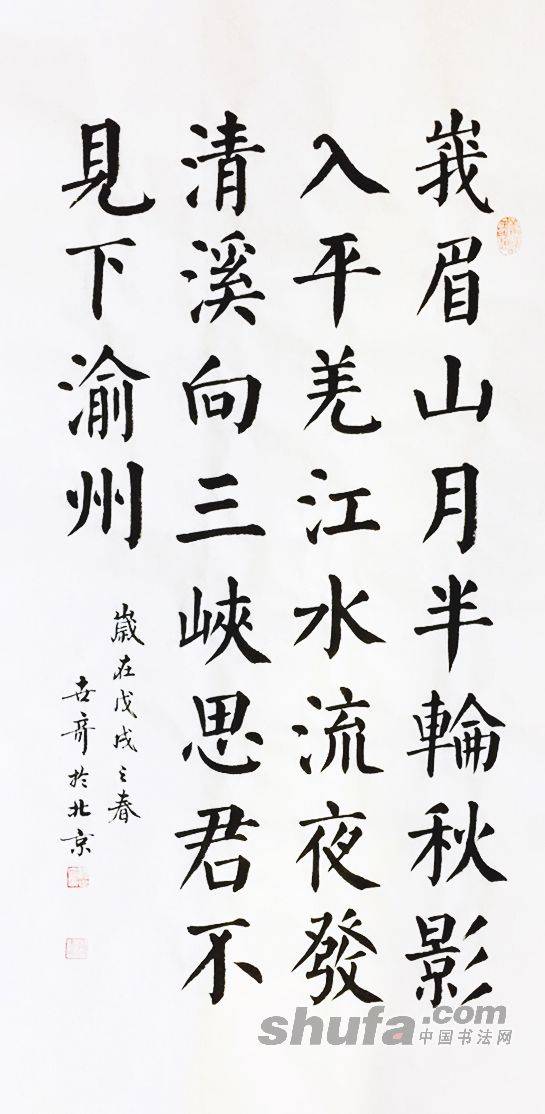 峩眉山月半輪秋影
入平羌江水流夜發
清溪向三峽思君不
見下渝州
歲在戊戌之春
於北京
shufa.com
中国书法网